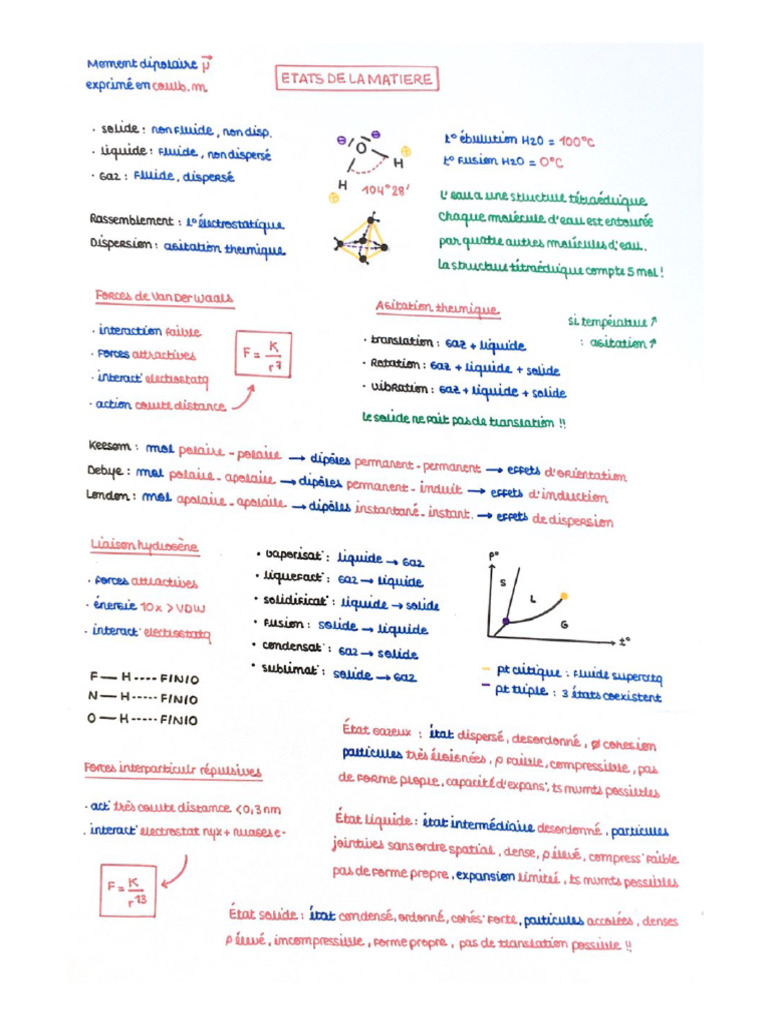 Moment dipolaire μ⃗
exprimé en coulb.m.
ETATS DE LA MATIERE
• solide : non fluide, non disp.
• liquide : fluide, non dispersé
• Gaz : fluide, dispersé
Rassemblement : I° électrostatique
Dispersion : agitation thermique
⊖ ⊖
O
H ⊕
H
⊕ 104°28'
t° ébulution H2O = 100°C
t° fusion H2O = 0°C
L'eau a une structure tétraédrique
chaque molécule d'eau est entourée
par quatre autres molécules d'eau.
la structure tétraédrique compte 5 mol !
Forces de Van Der Waals
• interaction faible
• forces attractives
• interact° electrostatq
• action courte distance
F = K/r⁷
Agitation thermique
si température ↗
: agitation ↗
• translation : Gaz + liquide
• Rotation : Gaz + liquide + solide
• Vibration : Gaz + liquide + solide
le solide ne fait pas de translation !!
Keesom : mol polaire - polaire → dipôles permanent - permanent → effets d'orientation
Debye : mol polaire - apolaire → dipôles permanent - induit → effets d'induction
London : mol apolaire - apolaire → dipôles instantané - instant. → effets de dispersion
Liaison hydrogène
• forces attractives
• énergie 10x > VDW
• interact° electrostatq
F — H ---- F/N/O
N — H ---- F/N/O
O — H ---- F/N/O
• vaporisat° : liquide → gaz
• liquefact° : gaz → liquide
• solidificat° : liquide → solide
• fusion : solide → liquide
• condensat° : gaz → solide
• sublimat° : solide → gaz
p°
S
L
G
t°
– pt critique : fluide supercritq
– pt triple : 3 états coexistent
Forces interparticulr répulsives
• act° très courte distance <0,3 nm
• interact° electrostat nyx + nuages e-
F = K/r¹³
État gazeux : état dispersé, desordonné, ∅ cohesion
particules très éloignées, ρ faible, compressible, pas
de forme propre, capacité d'expans°, ts mvmts possibles
État liquide : état intermédiaire desordonné, particules
jointives sans ordre spatial, dense, ρ élevé, compress° faible
pas de forme propre, expansion limitée, ts mvmts possibles
État solide : état condensé, ordonné, cohés° forte, particules accolées, denses
ρ élevé, incompressible, forme propre, pas de translation possible !!